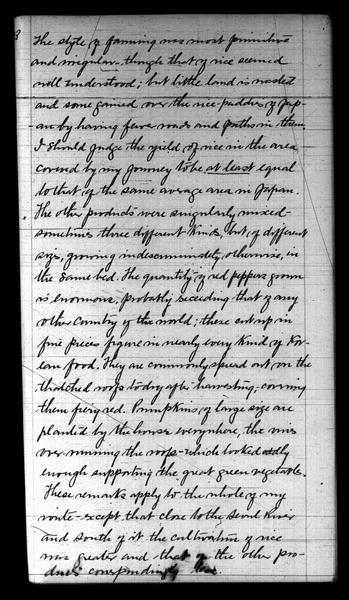 8
The style of farming was most primitive
and irregular though that of rice seemed
well understood; but little land is wasted
and some gained over the rice-paddies of Jap-
an by having fewer roads and paths in them.
I should judge the yield of rice in the area
covered by my journey to be at least equal
to that of the same average area in Japan.
The other products were singularly mixed-
sometimes three different kinds, but of different
size, growing indiscriminately, otherwise, in
the same bed. The quantity of red peppers grown
is enormous, probably exceeding that of any
other country of the world; these cut up in
fine pieces figure in nearly every kind of Kor-
ean food. They are commonly spread out on the
thatched roofs to dry after harvesting, covering
them fiery red. Pumpkins of large size are
planted by the houses everywhere, the vines
over-running the roofs-which looked oddly
enough supporting the great green vegetable.
These remarks apply to the whole of my
route-except that close to the Seoul River
and south of it the cultivation of rice
was greater and that of the other pro-
ducts correspondingly less.